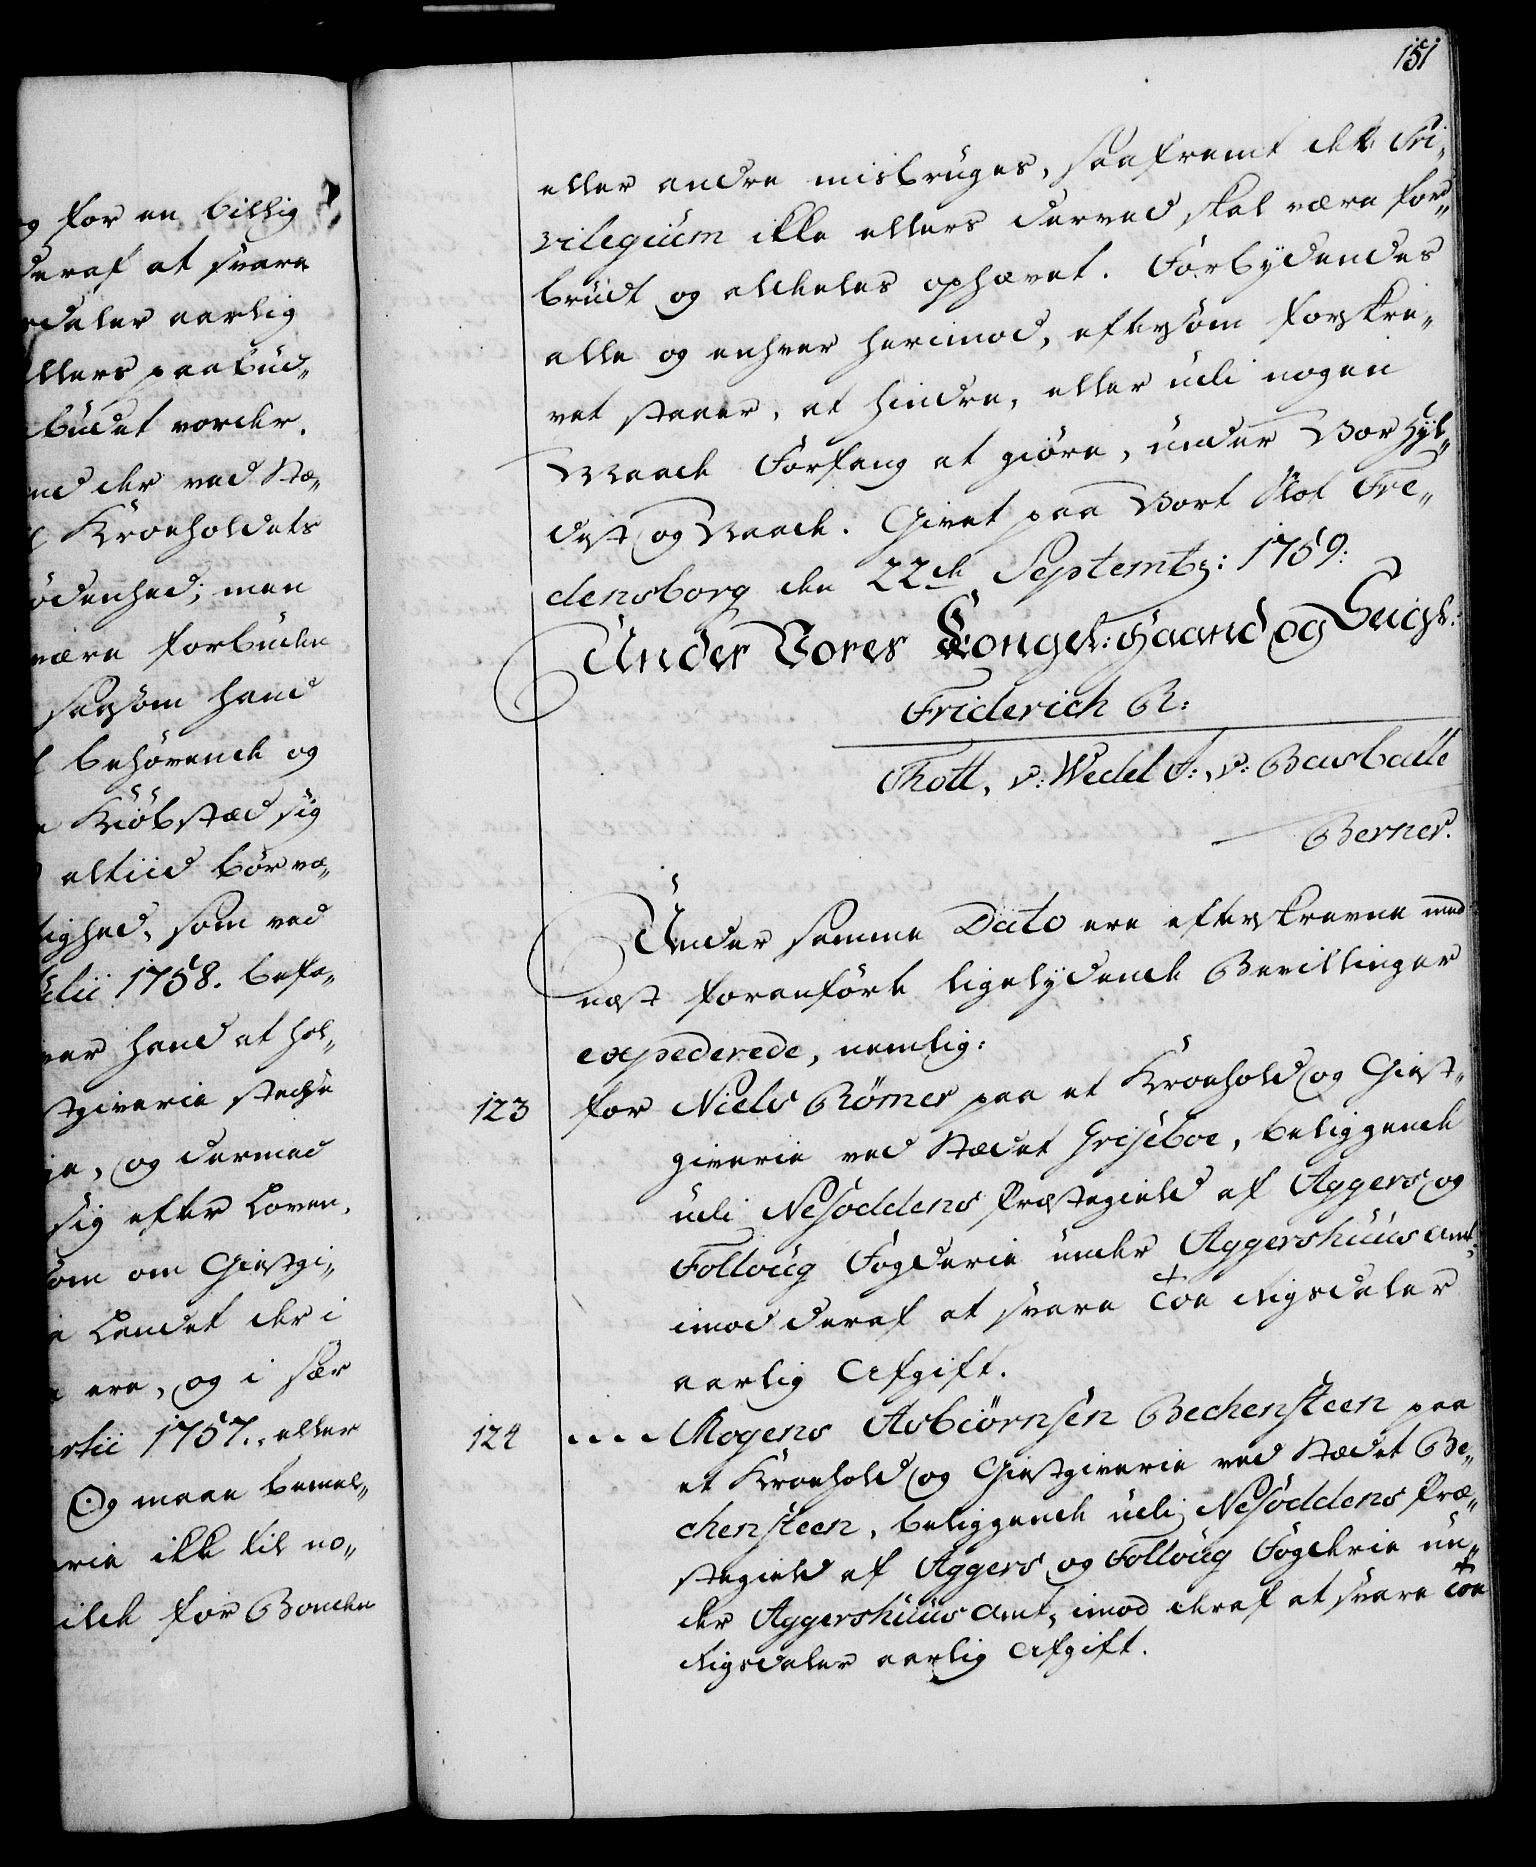 151
g for en billig
deraf at svare
rdaler aarlig
ellers paabud„
budet vorder.
der ved Stæ„
Kroeholdets
ödenhed; men
være forbuden
saasom hand
behörende og
Kiöbstæd sig
altiid bör væ„
lighed, som ved
ulii 1758. befa„
ver hand at hol„
stgiverie
og dermed
sig efter Loven,
som om Giestgi„
Landet der i
ere, og i sær
artii 1757. eller
Og maae bemel„
rie ikke til no„
ilde for Bonden
eller andre misbruges, saafremt dette Pri„
vilegium ikke ellers derved skal være for„
brudt og aldeles ophævet. Forbydendes
alle og enhver herimod, eftersom forskre„
vet staaer, at hindre, eller udi nogen
Maade Forfang at giöre, under Vor Hyl„
dest og Naade. Givet paa Vort Slot Fre„
densborg den 22de Septembr: 1759:
Under Vores Kongel: Haand og Seigl:
Friderich R:
Thott, v: Wedel F:, v: Beusballe
Berner.
Under samme Dato ere efterskrevne med
næst foranförte ligelydende Bevillinger
expederede, nemlig:
123 for Niels Römer paa et Kroehold og Giest„
giverie ved Stædet Griseboe, beliggende
udi Nesoddens Præstegield af Aggers og
Folloug Fogderie under Aggershuus Amt,
imod deraf at svare Toe Rigsdaler
aarlig Afgift.
124 .... Mogens Asbiörnsen Bechensteen paa
et Kroehold og Giestgiverie ved Stædet Be„
chensteen, beliggende udi Nesoddens Præ„
stegield af Aggers og Folloug Fogderie un„
der Aggershuus Amt, imod deraf at svare Toe
Rigsdaler aarlig Afgift.